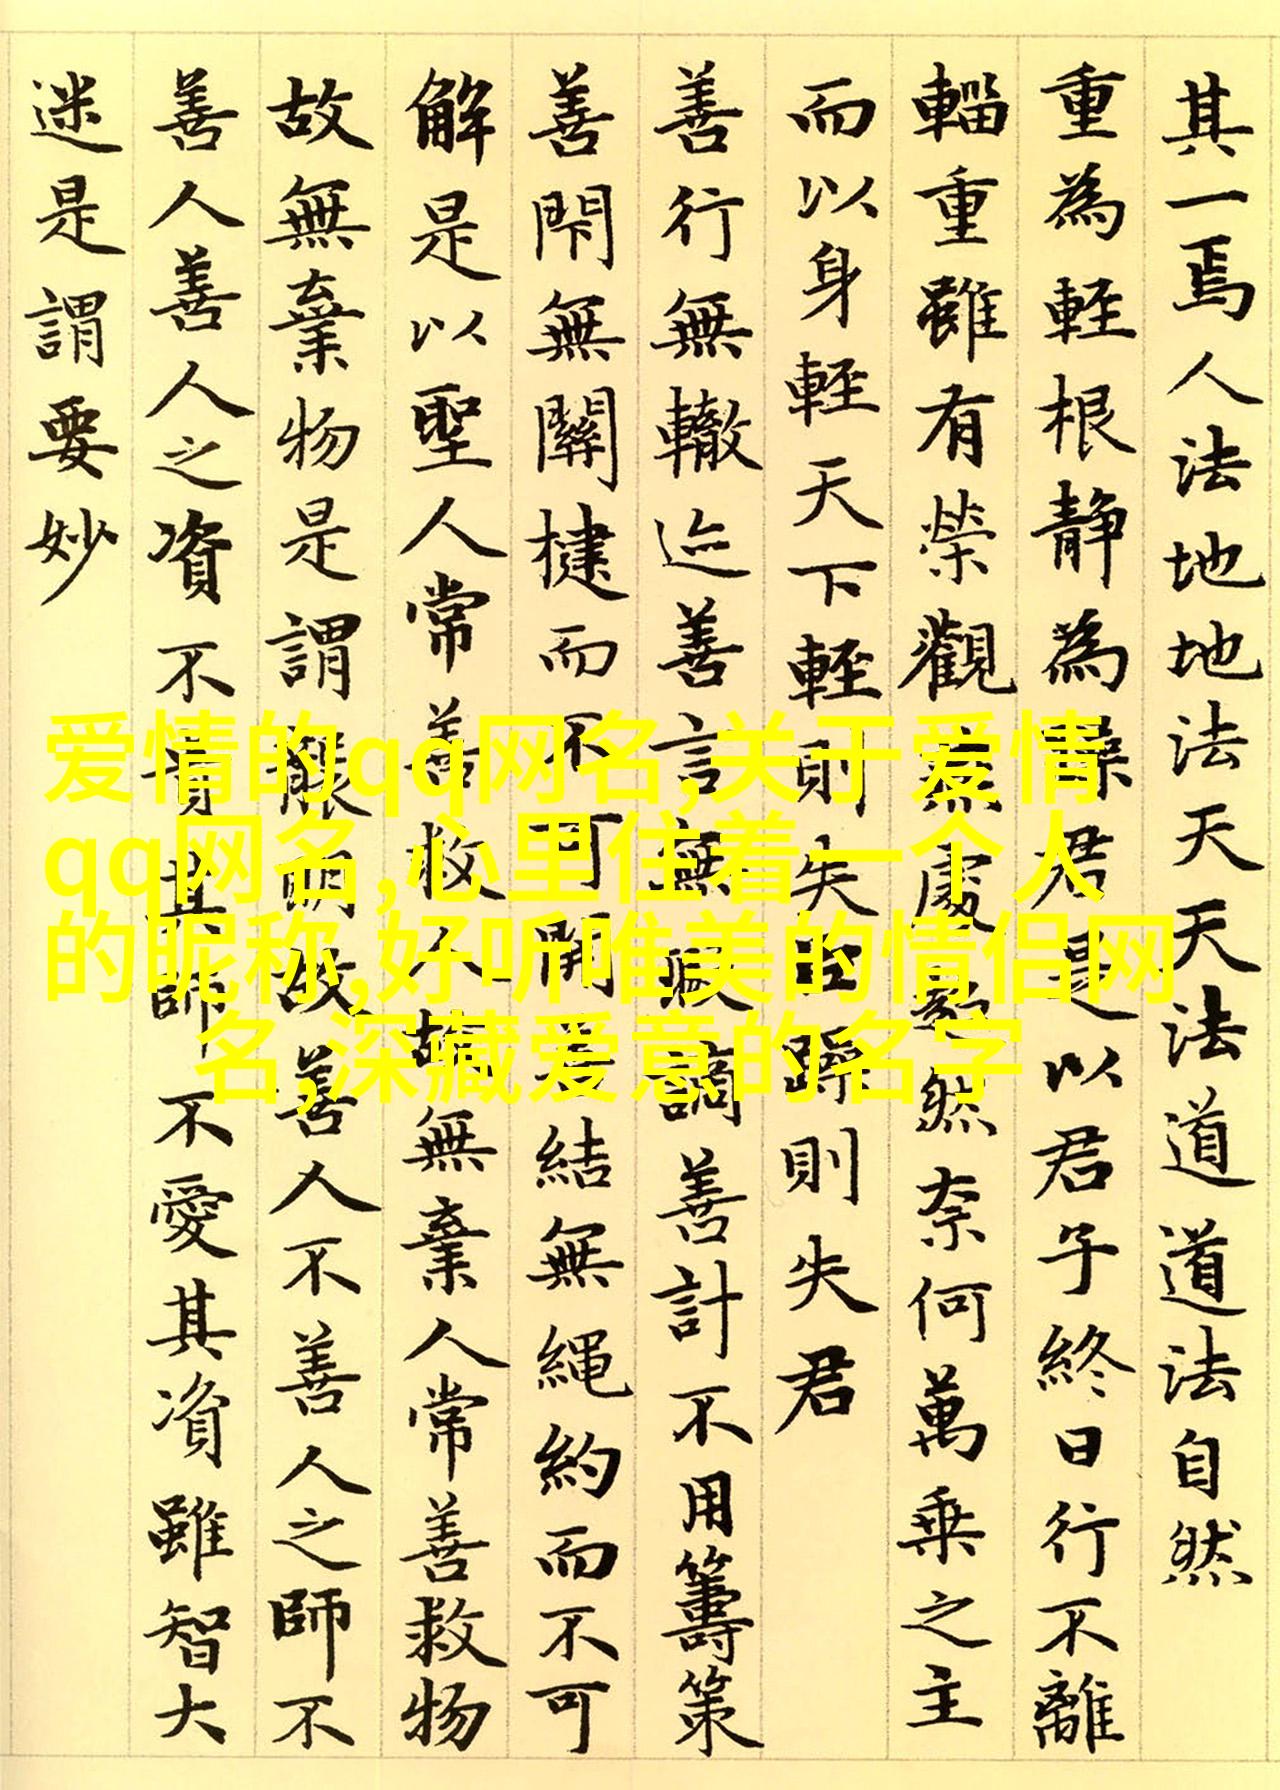 其一焉人法地地法天天法道道法自然
重為輕根靜為躁君是以君子終日行不離
輜重雖有榮觀燕處超然奈何萬乘之主
而以身輕天下輕則失臣躁則失君
善行無轍迹善言無瑕謫善計不用籌策
善閇無關楗而不可開善結無繩約而不可
解是以聖人常善救人故無棄人常善救物
故無棄物是謂襲明故善人不善人之師不
善人善人之資不貴其師不愛其資雖智大
迷是謂要妙
爱情的qq网名,关于爱情
qq网名,心里住着一个人
的昵称,好听唯美的情侣网
名,深藏爱意的名字